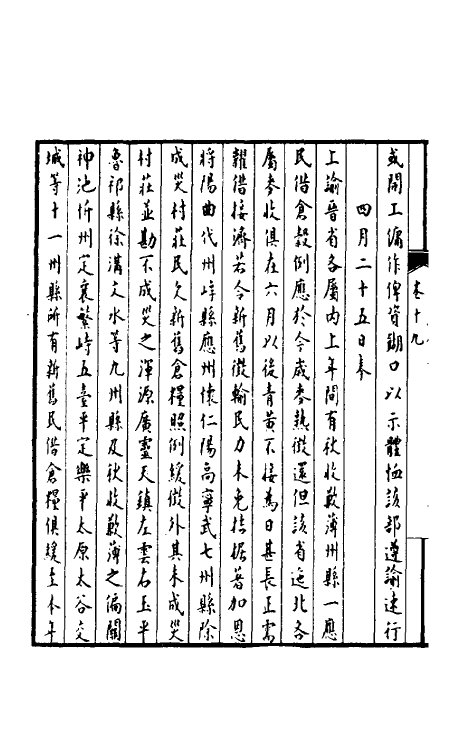 卷十九
或開工儹作俾資餬口以示體恤該部遵諭速行
四月二十五日奉
上諭晉省各屬內上年間有秋收歉薄州縣一應
民借倉穀例應於今歲麥熟徵還但該省迤北各
屬麥收俱在六月以後青黃不接為日甚長正需
糶借接濟若令新舊徵輸民力未免拮据著加恩
將陽曲代州崞縣應州懷仁陽高寧武七州縣除
成災村莊民欠新舊倉糧照例緩徵外其未成災
村莊並勘不成災之渾源廣靈天鎮左雲右玉平
魯祁縣徐溝文水等九州縣及秋收歉薄之偏關
神池忻州定襄繁峙五臺平定樂平太原太谷交
城等十一州縣所有新舊民借倉糧俱緩至本年